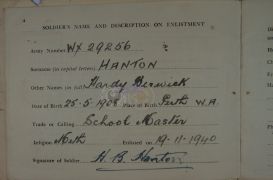 4
SOLDIER'S NAME AND DESCRIPTION ON ENLISTMENT
Army Number WX 29256
Surname (in capital letters) HANTON
Other Names (in full) Hardy Berwick
Date of Birth 25-5-1908 Place of Birth Perth W.A.
Trade or Calling School Master
Religion Meth Enlisted on 19-11-1940
Signature of Soldier H. B. Hanton